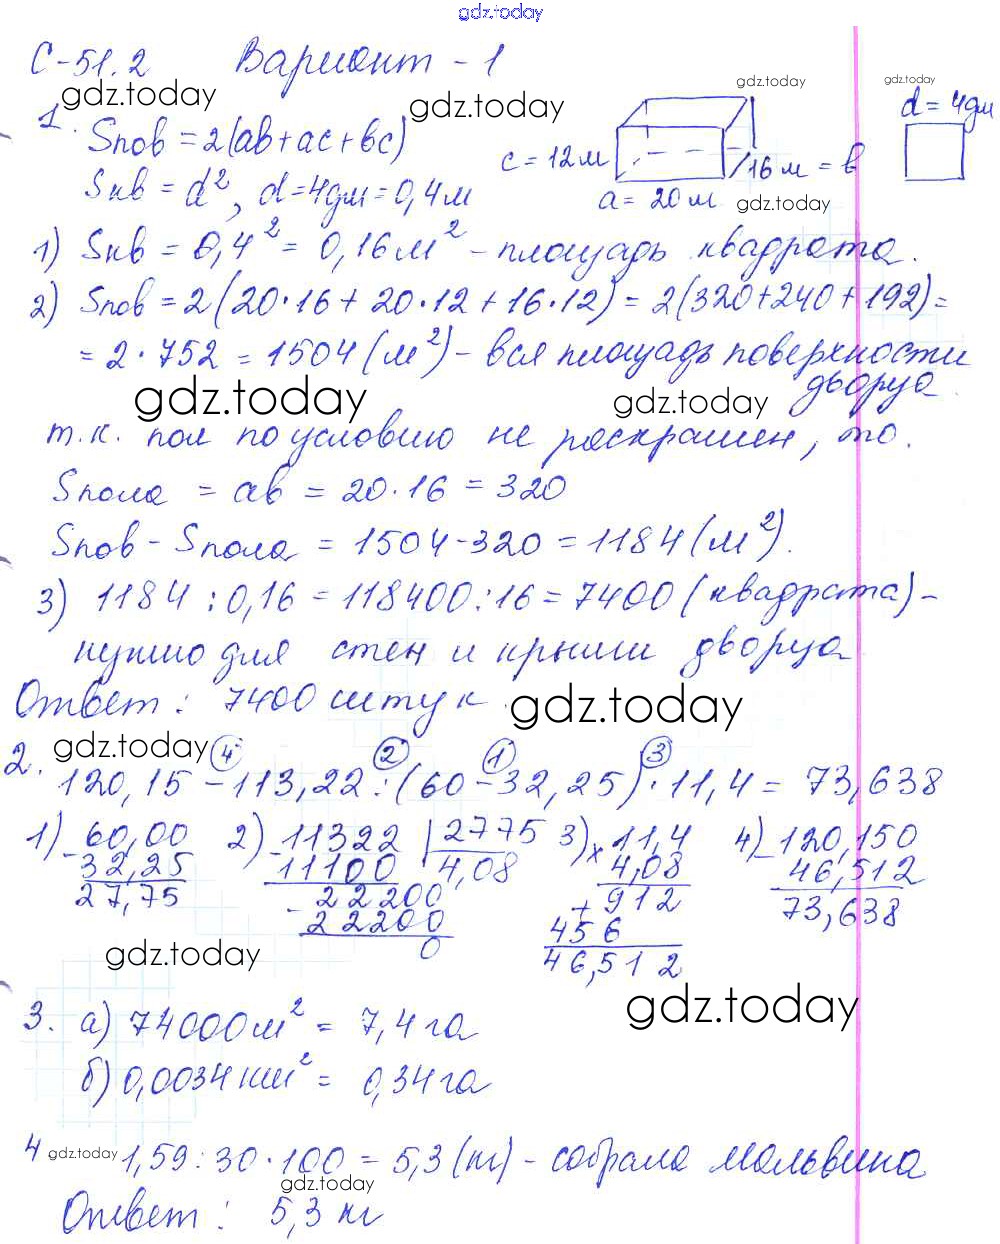 gdz.today
С-51.2 Вариант - 1
gdz.today gdz.today gdz.today gdz.today
1. Sпов = 2(ab+ac+bc)
c = 12 м
16 м = b
a = 20 м
d = 4дм
Sкв = d², d=4дм=0,4м
gdz.today
1) Sкв = 0,4² = 0,16 м² - площадь квадрата.
2) Sпов = 2(20·16 + 20·12 + 16·12) = 2(320+240+192) =
= 2·752 = 1504 (м²) - вся площадь поверхности
дворца.
gdz.today gdz.today
т.к. пол по условию не раскрашен, то.
Sпола = ab = 20·16 = 320
Sпов - Sпола = 1504-320 = 1184 (м²).
3) 1184 : 0,16 = 118400:16 = 7400 (квадрата) -
нужно для стен и крыши дворца
Ответ: 7400 штук.
gdz.today
gdz.today
4 2 1 3
2. 120,15 - 113,22 : (60 - 32,25) · 11,4 = 73,638
1) 60,00 2) 11322 | 2775 3) 11,4 4) 120,150
- 32,25 - 11100 4,08 × 4,08 - 46,512
27,75 - 22200 + 912 73,638
22200 456
0 46,512
gdz.today
gdz.today
3. а) 74000 м² = 7,4 га
б) 0,0034 км² = 0,34 га
4 gdz.today 1,59 : 30 · 100 = 5,3 (кг) - собрала Мальвина
gdz.today
Ответ: 5,3 кг